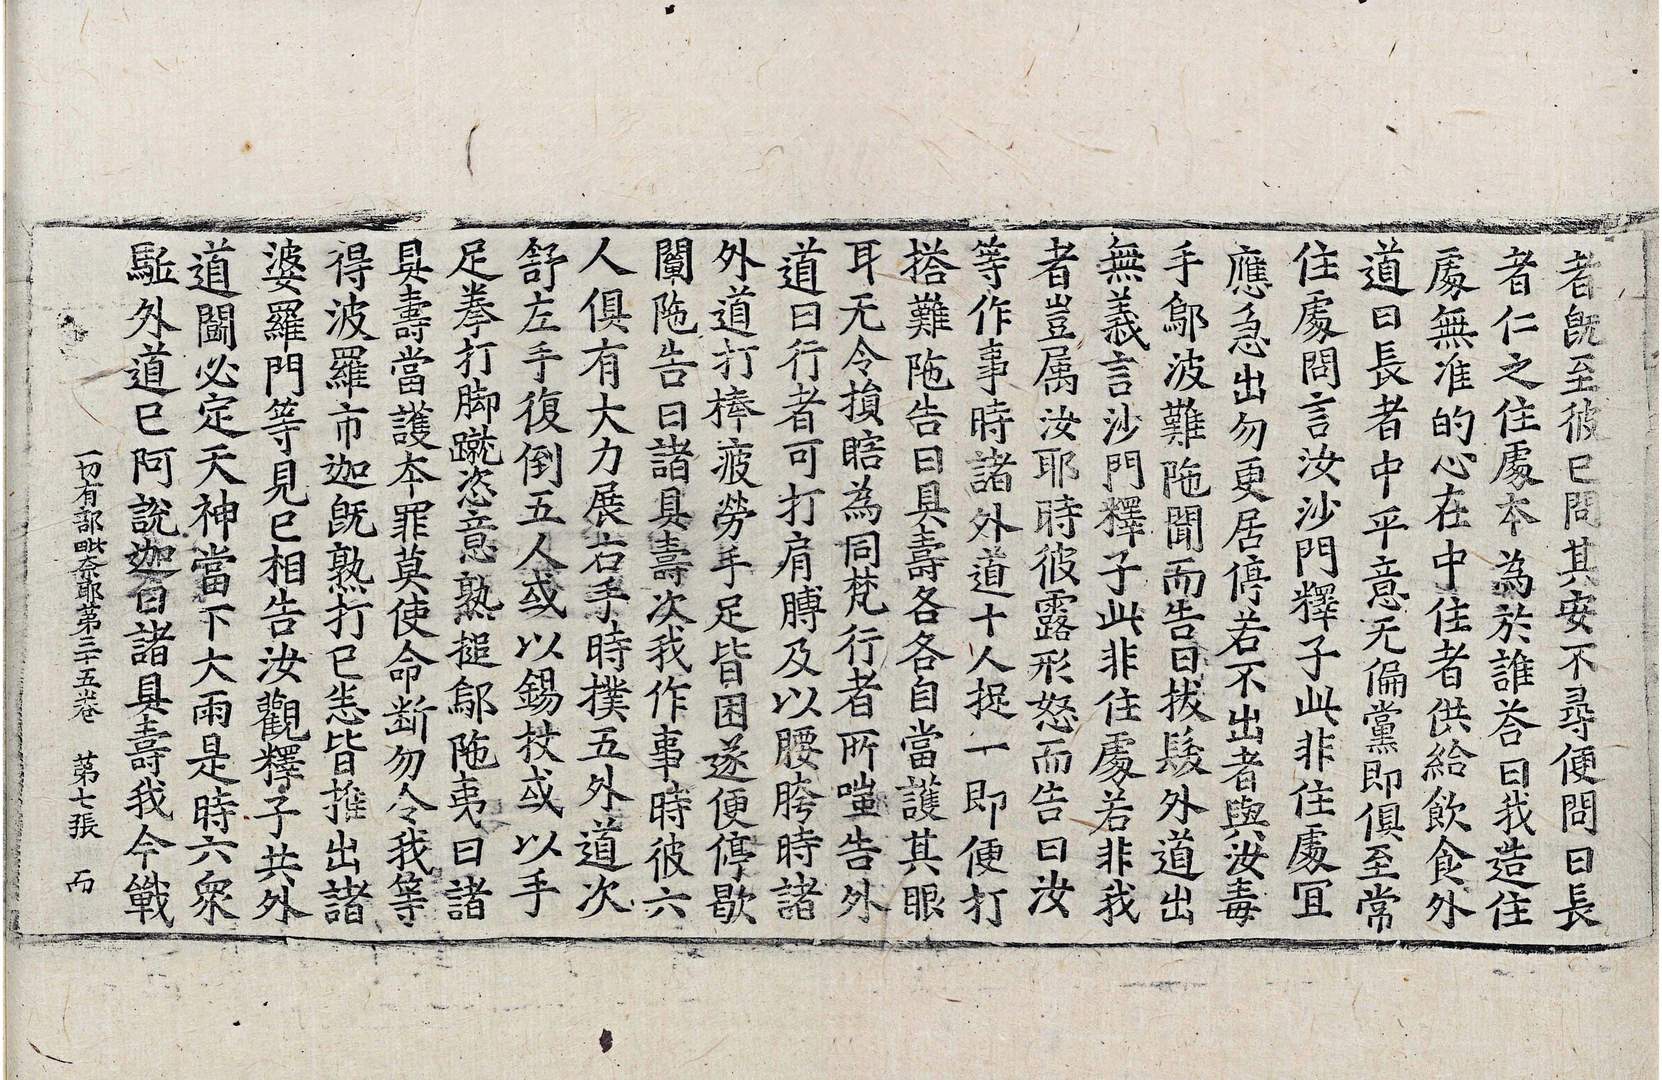 者旣至彼已問其安不尋便問曰長
者仁之住處本爲於誰荅曰我造住
處無准的心在中住者供給飮食外
道曰長者中平意无偏黨即俱至常
住處問言汝沙門釋子此非住處冝
應急出勿更居停若不出者與汝毒
手鄔波難陁聞而告曰拔髮外道出
無義言沙門釋子此非住處若非我
者豈属汝耶時彼露形怒而告曰汝
等作事時諸外道十人捉一即便打
搭難陁告曰具壽各各自當護其眼
耳无令損瞎為同梵行者所嗤告外
道曰行者可打肩膊及以腰胯時諸
外道打棒疲勞手足皆困遂便停歇
闡陁告曰諸具壽次我作事時彼六
人俱有大力展右手時撲五外道次
舒左手復倒五人或以錫杖或以手
足拳打脚蹴恣意熟搥鄔陁夷曰諸
具壽當護夲罪莫使命断勿令我等
得波羅市迦旣熟打已恙皆推出諸
婆羅門等見已相告汝觀釋子共外
道鬪必定天神當下大雨是時六衆
駈外道已阿說迦曰諸具壽我今戰
一切有部毗奈耶第三十五卷　第七張　而